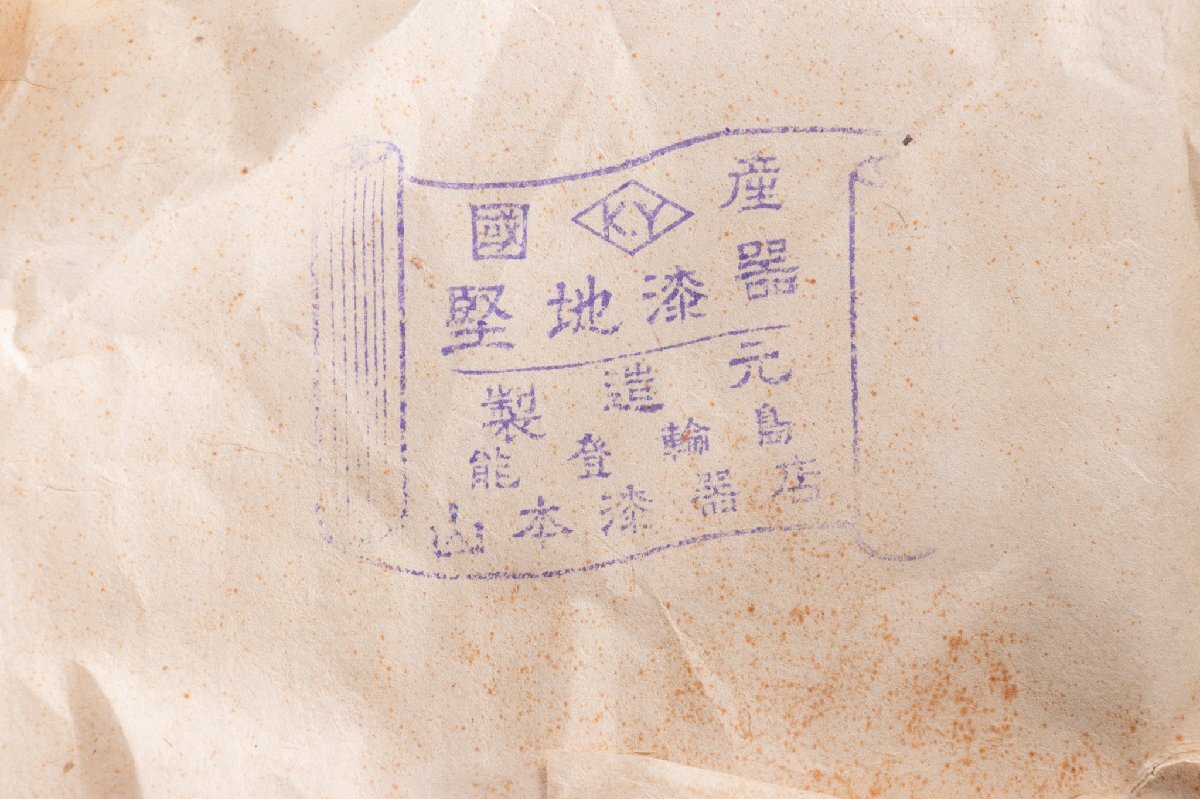 國 K.Y 産
堅地漆器
製造元
能登輪島
山本漆器店